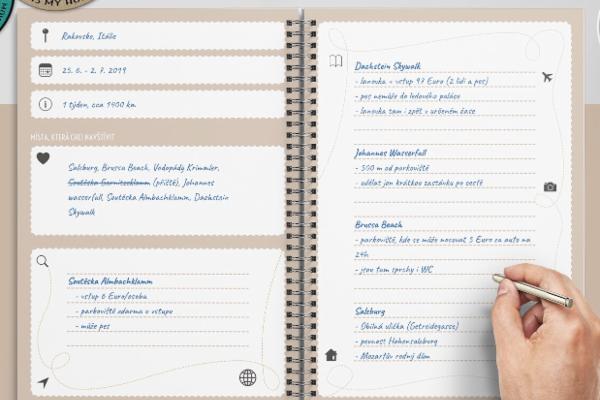 IS MY HO
Rakousko, Itálie
25. 6. - 2. 7. 2019
1 týden, cca 1900 km
MÍSTA, KTERÁ CHCI NAVŠTÍVIT
Salzburg, Brusca Beach, Vodopády Krimmler,
Soutěska Garnitzenklamm (příště), Johannes
wasserfall, Soutěska Almbachklamm, Dachstein
Skywalk
Soutěska Almbachklamm
- vstup 6 Euro/osoba
- parkoviště zdarma u vstupu
- může pes
Dachstein Skywalk
- lanovka + vstup 97 Euro (2 lidi a pes)
- pes nemůže do ledového paláce
- lanovka tam i zpět v určeném čase
Johannes Wasserfall
- 500 m od parkoviště
- udělat jen krátkou zastávku po cestě
Brusca Beach
- parkoviště, kde se může nocovat 5 Euro za auto na
24h
- jsou tam sprchy i WC
Salzburg
- Obilná ulička (Getreidegasse)
- pevnost Hohensalzburg
- Mozartův rodný dům